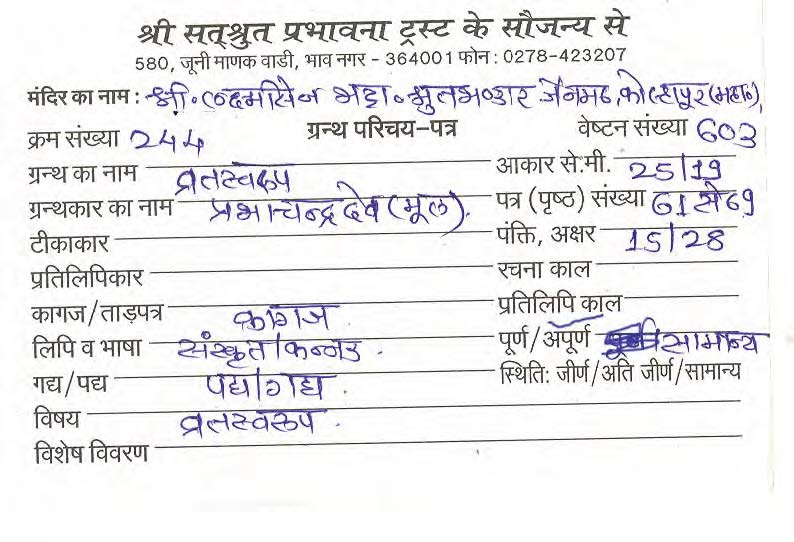 श्री सत्श्रुत प्रभावना ट्रस्ट के सौजन्य से
580, जूनी माणक वाडी, भाव नगर - 364001 फोन : 0278-423207
मंदिर का नाम : श्री. लक्ष्मीसेन भट्टा. श्रुतभण्डार जैनमठ, कोल्हापुर (महा०)
क्रम संख्या 244 ग्रन्थ परिचय-पत्र वेष्टन संख्या 603
ग्रन्थ का नाम व्रतस्वरूप आकार से.मी. 25/19
ग्रन्थकार का नाम प्रभाचन्द्रदेव (मूल). पत्र (पृष्ठ) संख्या 61 से 69
टीकाकार पंक्ति, अक्षर 15/28
प्रतिलिपिकार रचना काल
कागज/ताड़पत्र कागज प्रतिलिपि काल
लिपि व भाषा संस्कृत/कन्नड. पूर्ण/अपूर्ण सामान्य
गद्य/पद्य पद्य/गद्य स्थिति: जीर्ण/अति जीर्ण/सामान्य
विषय व्रतस्वरूप.
विशेष विवरण